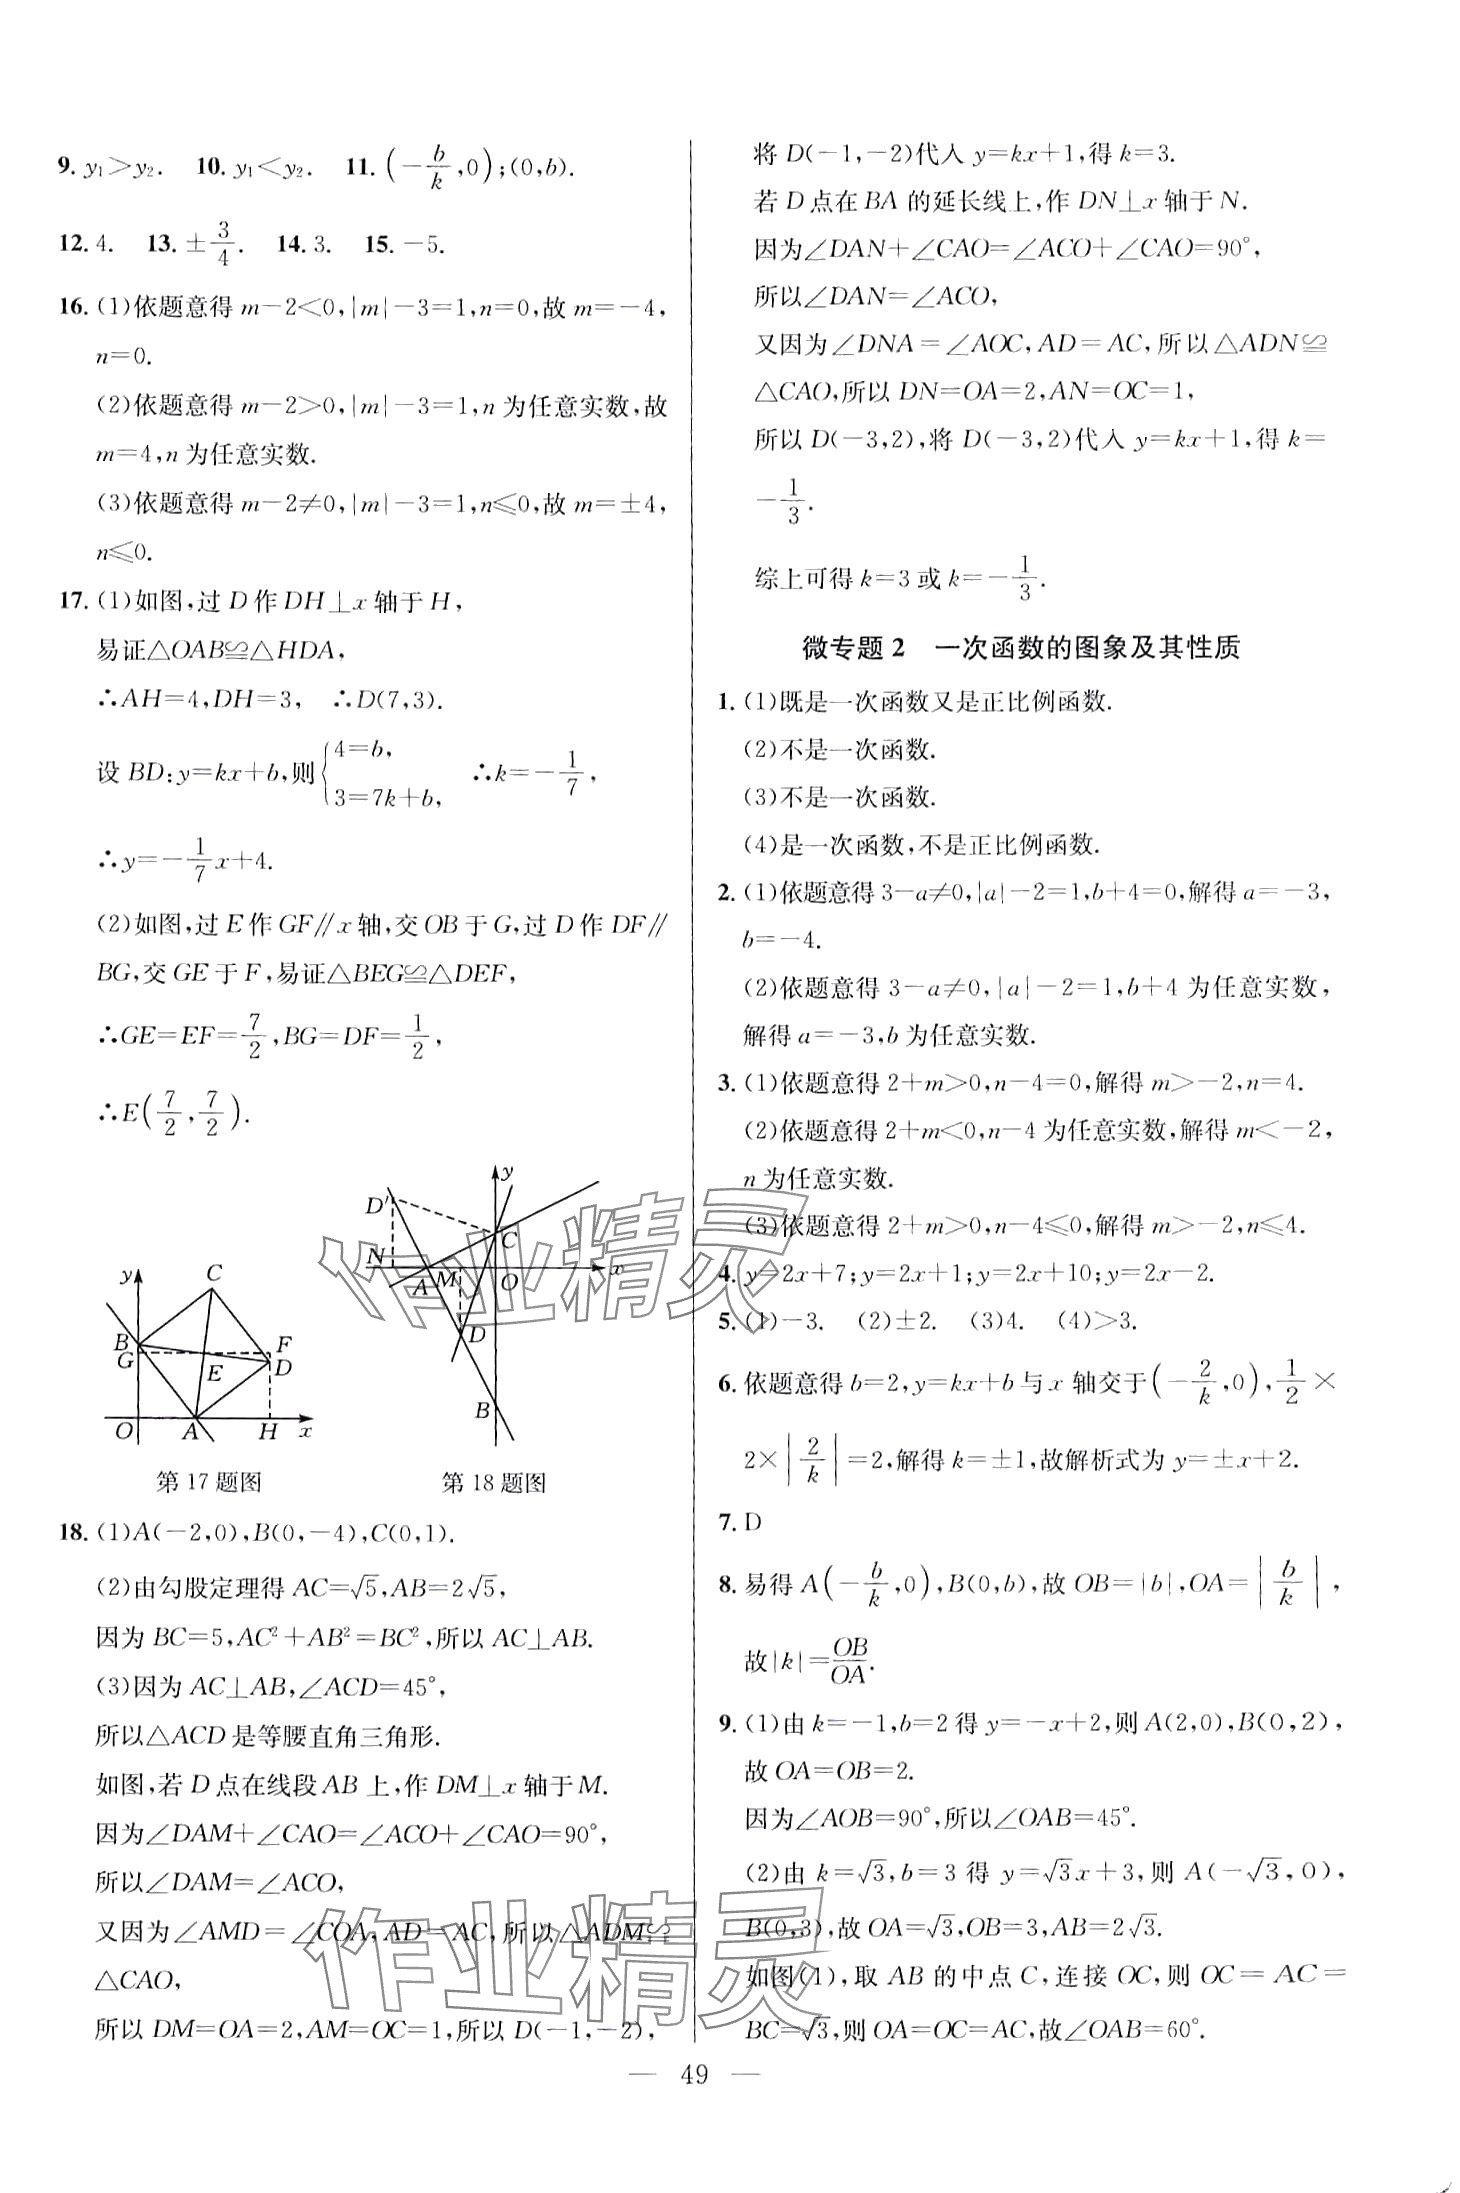 9. y₁>y₂. 10. y₁<y₂. 11. (-b/k,0);(0,b).
12. 4. 13. ±3/4. 14. 3. 15. -5.
16. (1)依题意得 m-2<0,|m|-3=1,n=0,故 m=-4,
n=0.
(2)依题意得 m-2>0,|m|-3=1,n 为任意实数,故
m=4,n 为任意实数.
(3)依题意得 m-2≠0,|m|-3=1,n⩽0,故 m=±4,
n⩽0.
17. (1)如图,过 D 作 DH⊥x 轴于 H,
易证△OAB≌△HDA,
∴AH=4,DH=3, ∴D(7,3).
设 BD:y=kx+b,则{4=b, 3=7k+b, ∴k=-1/7,
∴y=-1/7x+4.
(2)如图,过 E 作 GF∥x 轴,交 OB 于 G,过 D 作 DF∥
BG,交 GE 于 F,易证△BEG≌△DEF,
∴GE=EF=7/2,BG=DF=1/2,
∴E(7/2,7/2).
y C B G E F D O A H x
第17题图
D′ y N C A M O x D B
第18题图
18. (1)A(-2,0),B(0,-4),C(0,1).
(2)由勾股定理得 AC=√5,AB=2√5,
因为 BC=5,AC²+AB²=BC²,所以 AC⊥AB.
(3)因为 AC⊥AB,∠ACD=45°,
所以△ACD 是等腰直角三角形.
如图,若 D 点在线段 AB 上,作 DM⊥x 轴于 M.
因为∠DAM+∠CAO=∠ACO+∠CAO=90°,
所以∠DAM=∠ACO,
又因为∠AMD=∠COA,AD=AC,所以△ADM≌
△CAO,
所以 DM=OA=2,AM=OC=1,所以 D(-1,-2),
将 D(-1,-2)代入 y=kx+1,得 k=3.
若 D 点在 BA 的延长线上,作 DN⊥x 轴于 N.
因为∠DAN+∠CAO=∠ACO+∠CAO=90°,
所以∠DAN=∠ACO,
又因为∠DNA=∠AOC,AD=AC,所以△ADN≌
△CAO,所以 DN=OA=2,AN=OC=1,
所以 D(-3,2),将 D(-3,2)代入 y=kx+1,得 k=
-1/3.
综上可得 k=3 或 k=-1/3.
微专题 2 一次函数的图象及其性质
1. (1)既是一次函数又是正比例函数.
(2)不是一次函数.
(3)不是一次函数.
(4)是一次函数,不是正比例函数.
2. (1)依题意得 3-a≠0,|a|-2=1,b+4=0,解得 a=-3,
b=-4.
(2)依题意得 3-a≠0,|a|-2=1,b+4 为任意实数,
解得 a=-3,b 为任意实数.
3. (1)依题意得 2+m>0,n-4=0,解得 m>-2,n=4.
(2)依题意得 2+m<0,n-4 为任意实数,解得 m<-2,
n 为任意实数.
(3)依题意得 2+m>0,n-4⩽0,解得 m>-2,n⩽4.
4. y=2x+7;y=2x+1;y=2x+10;y=2x-2.
5. (1)-3. (2)±2. (3)4. (4)>3.
6. 依题意得 b=2,y=kx+b 与 x 轴交于(-2/k,0),1/2×
2×|2/k|=2,解得 k=±1,故解析式为 y=±x+2.
7. D
8. 易得 A(-b/k,0),B(0,b),故 OB=|b|,OA=|b/k|,
故|k|=OB/OA.
9. (1)由 k=-1,b=2 得 y=-x+2,则 A(2,0),B(0,2),
故 OA=OB=2.
因为∠AOB=90°,所以∠OAB=45°.
(2)由 k=√3,b=3 得 y=√3x+3,则 A(-√3,0),
B(0,3),故 OA=√3,OB=3,AB=2√3.
如图(1),取 AB 的中点 C,连接 OC,则 OC=AC=
BC=√3,则 OA=OC=AC,故∠OAB=60°.
— 49 —
作业精灵
作业精灵